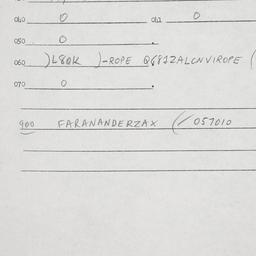 040 0 042 0
050 0
060 )L80K )-ROPE Q6812ALCNVIROPE (
070 0
900 FARANANDERZAX (/057010